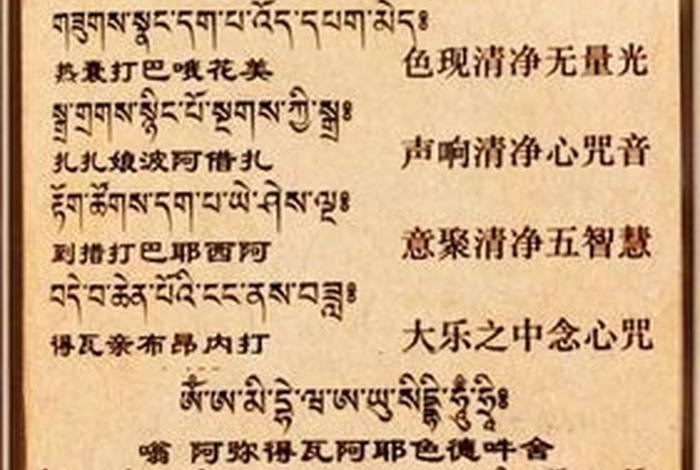 གཟུགས་སྣང་དག་པ་འོད་དཔག་མེད༔
热囊打巴哦花美 色现清净无量光
སྒྲ་གྲགས་སྙིང་པོ་སྔགས་ཀྱི་སྒྲ༔
扎扎娘波阿借扎 声响清净心咒音
རྟོག་ཚོགས་དག་པ་ཡེ་ཤེས་ལྔ༔
到措打巴耶西阿 意聚清净五智慧
བདེ་བ་ཆེན་པོའི་ངང་ནས་བཟླ༔
得瓦亲布昂内打 大乐之中念心咒
ༀ་ཨ་མི་དྷེ་ཝ་ཨ་ཡུ་སིདྡྷི་ཧཱུྂ་ཧྲཱི༔
嗡 阿弥得瓦阿耶色德吽舍